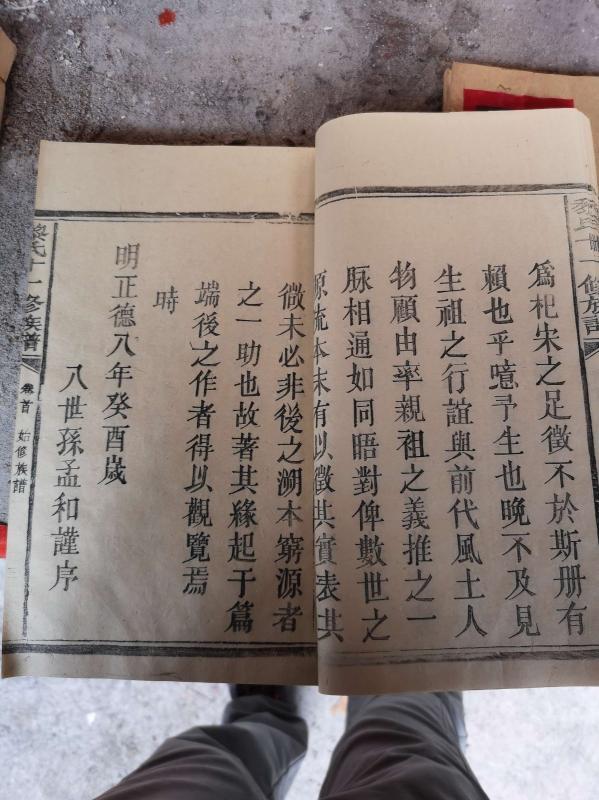 黎氏十一修族譜
為杞宋之足徵不於斯册有
賴也乎噫予生也晚不及見
生祖之行誼與前代風土人
物顧由率親祖之義推之一
脉相通如同晤對俾數世之
原流本末有以徵其實表其
微未必非後之溯本窮源者
之一助也故著其緣起于篇
端後之作者得以觀覽焉
時
明正德八年癸酉歲
八世孫孟和謹序
黎氏十一修族譜
卷首 始修族譜